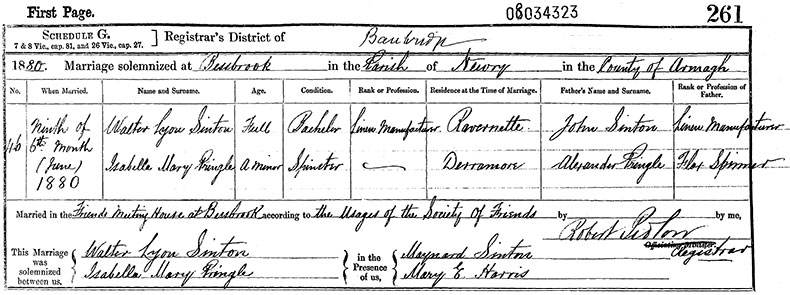 First Page.
08034323
261
SCHEDULE G.
7 & 8 Vic., cap. 81, and 26 Vic., cap. 27.
Registrar's District of Banbridge
1880. Marriage solemnized at Bessbrook in the Parish of Newry in the County of Armagh
No. When Married. Name and Surname. Age. Condition. Rank or Profession. Residence at the Time of Marriage. Father's Name and Surname. Rank or Profession of Father.
46 Ninth of 6th Month (June) 1880
Walter Lyon Sinton Full Bachelor Linen Manufacturer Ravernette John Sinton Linen Manufacturer
Isabella Mary Pringle A minor Spinster Derramore Alexander Pringle Flax Spinner
Married in the Friends Meeting House at Bessbrook according to the Usages of the Society of Friends by by me,
Robert
Registrar
This Marriage was solemnized between us,
Walter Lyon Sinton
Isabella Mary Pringle
in the Presence of us,
Maynard Sinton
Mary E. Harris